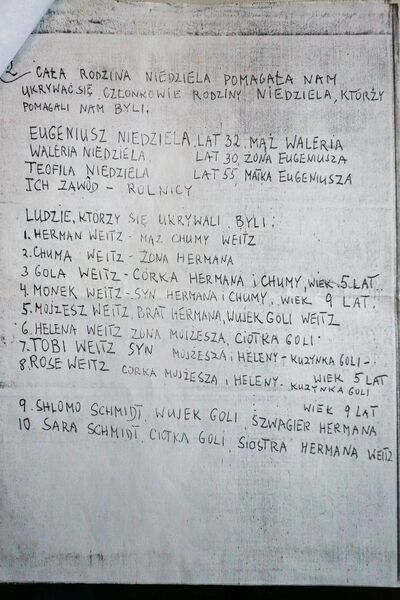 2
CAŁA RODZINA NIEDZIELA POMAGAŁA NAM
UKRYWAĆ SIĘ, CZŁONKOWIE RODZINY NIEDZIELA, KTÓRZY
POMAGALI NAM BYLI:
EUGENIUSZ NIEDZIELA, LAT 32, MĄŻ WALERIA
WALERIA NIEDZIELA, LAT 30, ŻONA EUGENIUSZA
TEOFILA NIEDZIELA LAT 55, MATKA EUGENIUSZA
ICH ZAWÓD - ROLNICY
LUDZIE, KTÓRZY SIĘ UKRYWALI BYLI:
1. HERMAN WEITZ - MĄŻ CHUMY WEITZ
2. CHUMA WEITZ - ŻONA HERMANA
3 GOLA WEITZ - CÓRKA HERMANA i CHUMY, WIEK 5 LAT
4. MONEK WEITZ - SYN HERMANA i CHUMY, WIEK 9 LAT.
5. MOJŻESZ WEITZ, BRAT HERMANA, WUJEK GOLI WEITZ
6. HELENA WEITZ ŻONA MOJŻESZA, CIOTKA GOLI
7. TOBI WEITZ SYN MOJŻESZA i HELENY - KUZYNKA GOLI -
WIEK 5 LAT
8. ROSE WEITZ CÓRKA MOJŻESZA i HELENY - KUZYNKA GOLI
WIEK 9 LAT
9. SHLOMO SCHMIDT, WUJEK GOLI, SZWAGIER HERMANA
10. SARA SCHMIDT, CIOTKA GOLI, SIOSTRA HERMANA WEITZ